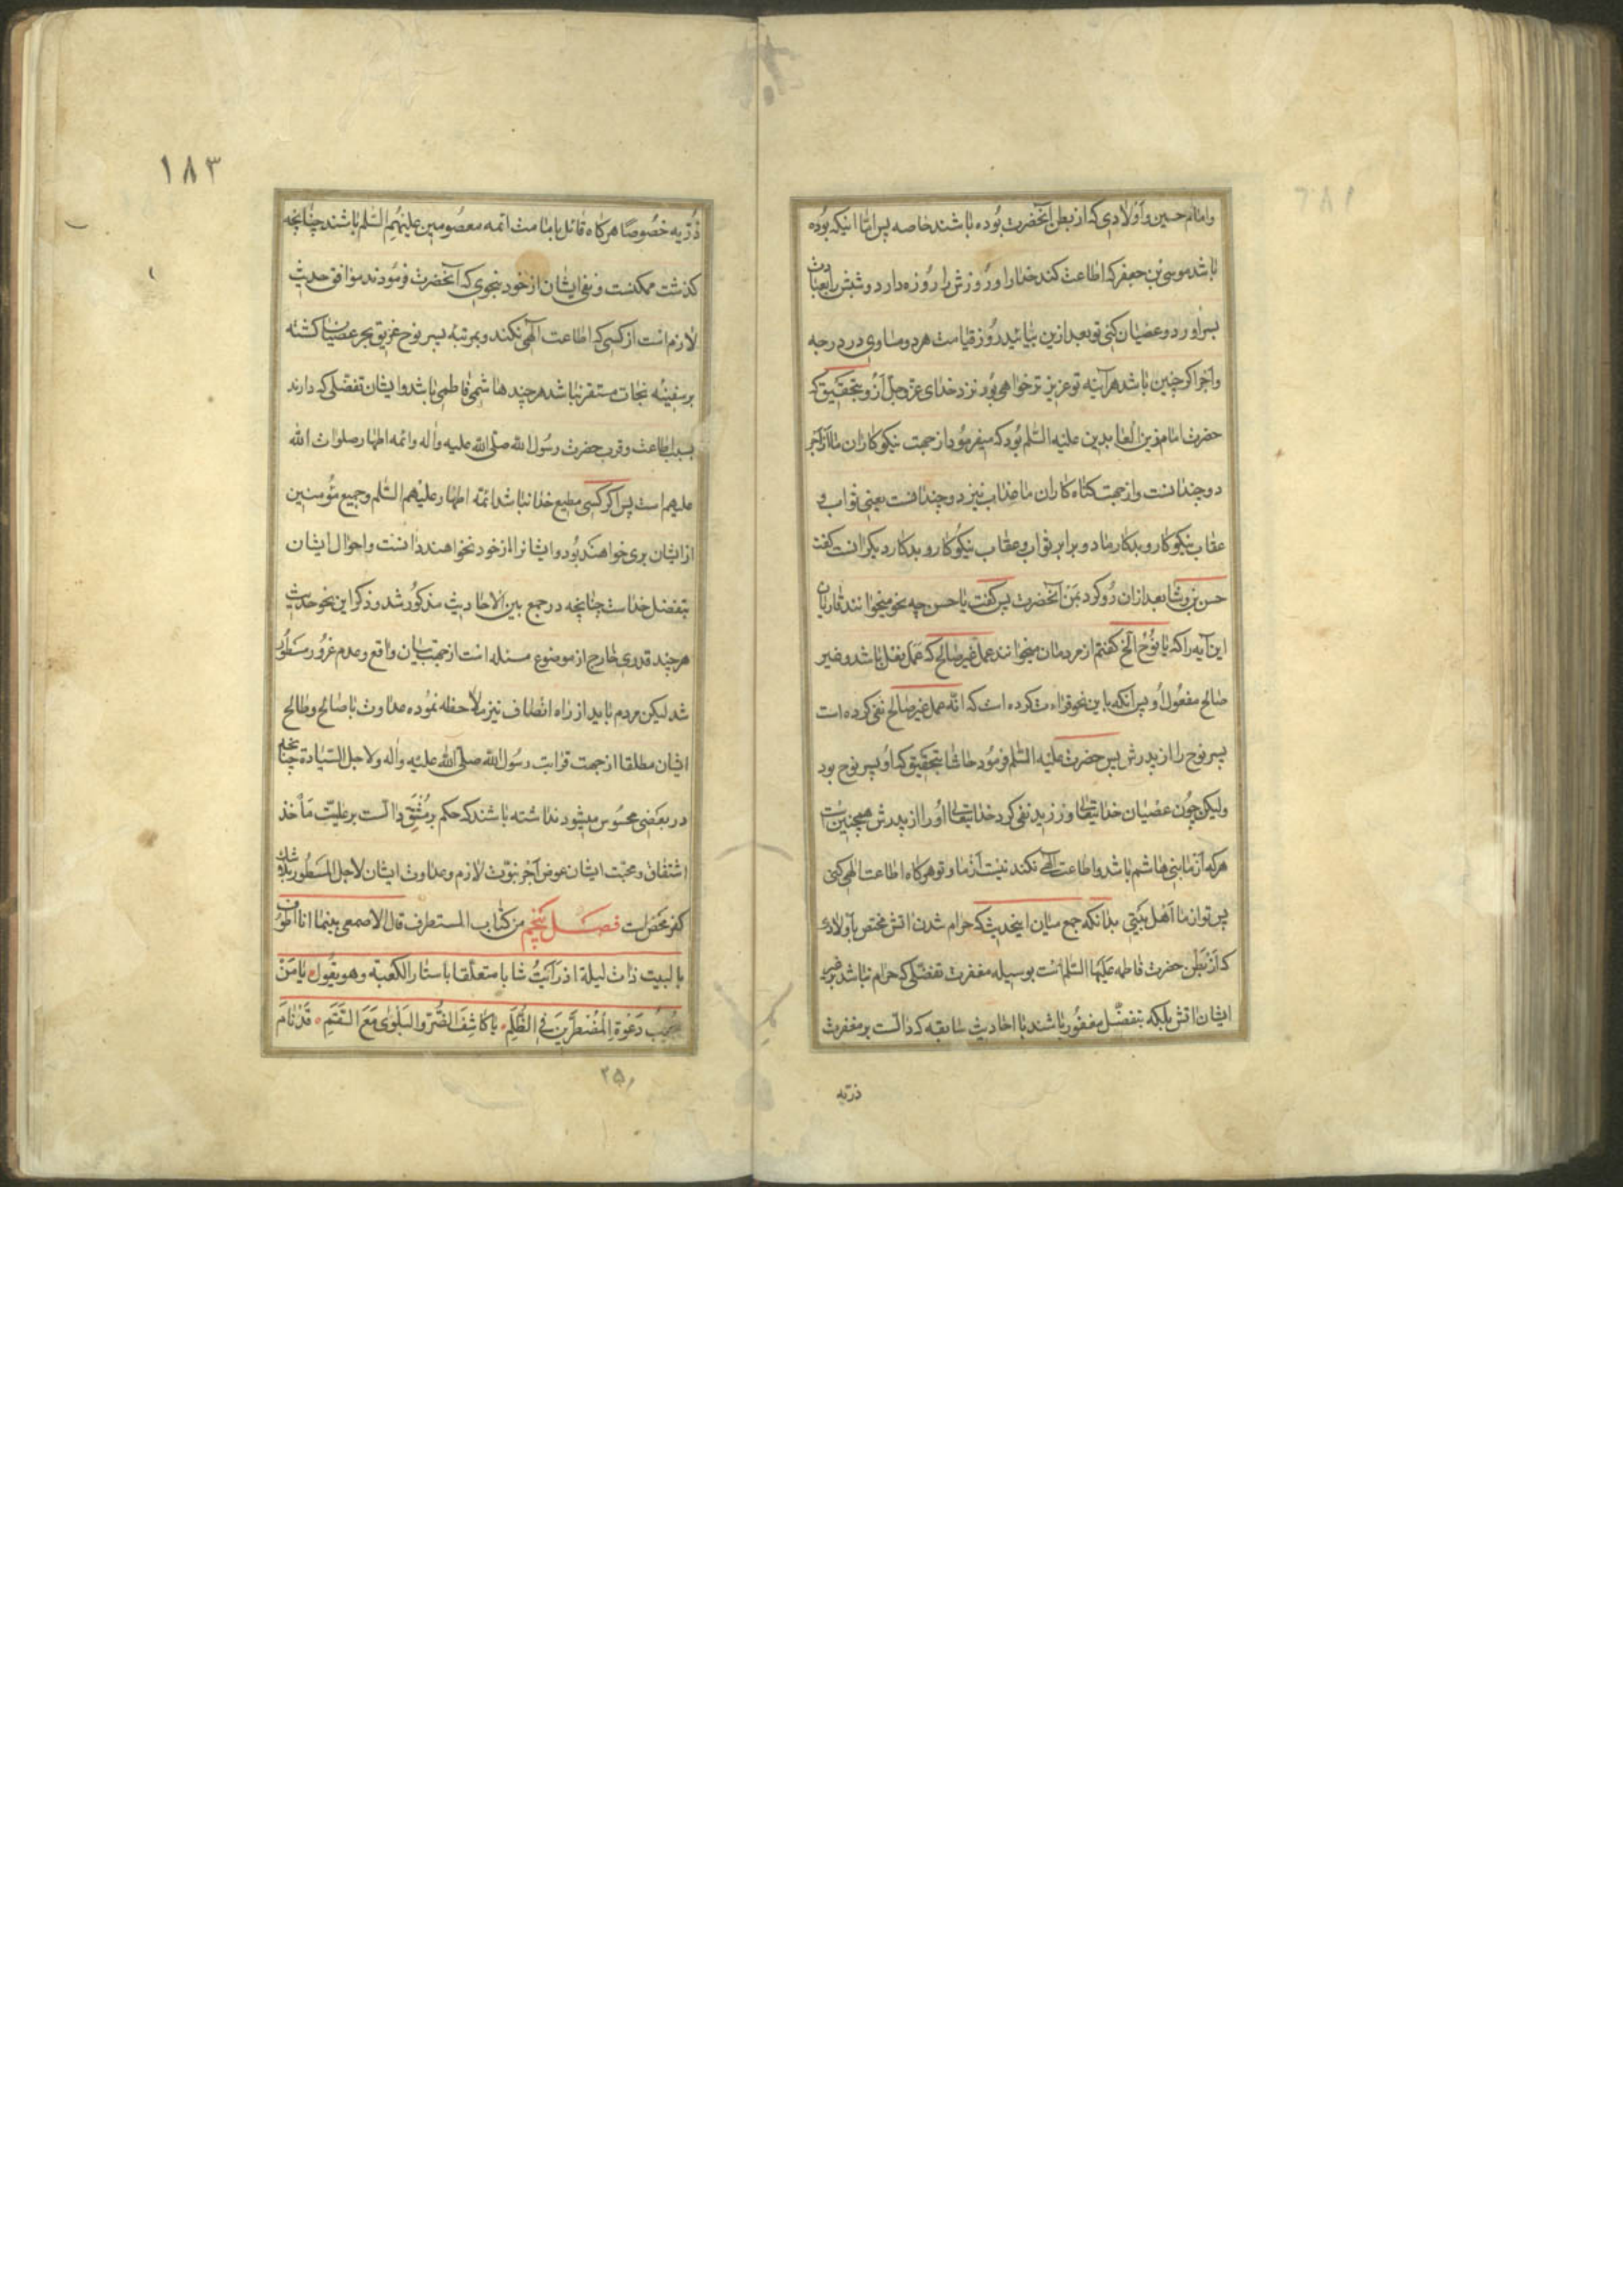 وامام حسین و اولادی که از بطن آنحضرت بوده باشند خاصه پس اما اینکه بوده
باشد موسی بن جعفر که اطاعت کند خدا را و روزش را روزه دارد و شبش را بعبادت
بسر اورد و عصیان کنی تو بعد ازین بیائید روز قیامت هر دو مساوی در درجه
واجر اکر چنین باشد هر آینه تو عزیز تر خواهی بود نزد خدای عزوجل ازو بتحقیق که
حضرت امام زین العابدین علیه السلم بود که میفرمود از جهت نیکو کاران ما اجر
دو چندانست و از جهت کناه کاران ما عذاب نیز دو چندانست یعنی ثواب و
عقاب نیکو کار و بدکار ما دو برابر ثواب و عقاب نیکو کار و بدکار دیکرانست کفت
حسن بن وشا بعد از ان رو کرد بمن آنحضرت پس کفت یا حسن چه نحو میخوانند قاریان
این آیه را که یا نوح الخ کفتم از مردمان میخوانند عمل غیر صالح که عمل بفعل باشد و غیر
صالح مفعول او پس آنکه باین نحو قراءت کرده است که انه عمل غیر صالح نفی کرده است
پسر نوح را از پدرش پس حضرت علیه السلم فرمود حاشا بتحقیق که او پسر نوح بود
ولیکن چون عصیان خدایتعالی ورزید نفی کرد خدایتعالی او را از پدرش همچنین است
هر که از ما بنی هاشم باشد و اطاعت الهی نکند نیست از ما و تو هرکاه اطاعت الهی کنی
پس تو از ما اهل بیتی بدانکه جمع میان اینحدیث که حرام شدن اتش مختص باولادی
که از بطن حضرت فاطمه علیها السلم است بوسیله مغفرت تفضلی که حرام نباشد بر غیر
ایشان اتش بلکه بتفضل مغفور باشند با احادیث سابقه که دالست بر مغفرت
ذریه
۱۸۳
ذریه خصوصا هرکاه قائل بامامت ائمه معصومین علیهم السلم باشند چنانچه
کذشت ممکنست و نفی ایشان از خود بنحوی که آنحضرت فرمودند موافق حدیث
لازم است از کسی که اطاعت الهی نکند و بمرتبه پسر نوح غریق بحر عصیان کشته
بر سفینه نجات مستقر نباشد هر چند هاشمی فاطمی باشد و ایشان تفضلی که دارند
بسبب اطاعت و قرب حضرت رسول الله صلی الله علیه واله وائمه اطهار صلوات الله
علیهم است پس اکر کسی مطیع خدا نباشد ائمه اطهار علیهم السلم و جمیع مؤمنین
از ایشان بری خواهند بود و ایشانرا از خود نخواهند دانست و احوال ایشان
بتفضل خداست چنانچه در جمع بین الاحادیث مذکور شد و ذکر این نحو حدیث
هر چند قدری خارج از موضوع مسئله است از جهت بیان واقع و عدم غرور مسطور
شد لیکن مردم باید از راه انصاف نیز ملاحظه نموده عداوت با صالح و طالح
ایشان مطلقا از جهت قرابت رسول الله صلی الله علیه واله ولاجل السیادة چنانچه
در بعضی محسوس میشود نداشته باشند که حکم بر مشتق دالست بر علیت مأخذ
اشتقاق و محبت ایشان عوض اجر نبوت لازم و عداوت ایشان لاجل المسطور بلاشک
کفر محض است فصل پنجم من کتاب المستطرف قال الاصمعی بینما انا اطوف
بالبیت ذات لیلة اذ رأیت شابا متعلقا باستار الکعبة وهو یقول یا من
یجیب دعوة المضطرین فی الظلم یا کاشف الضر والبلوی مع السقم قد نام